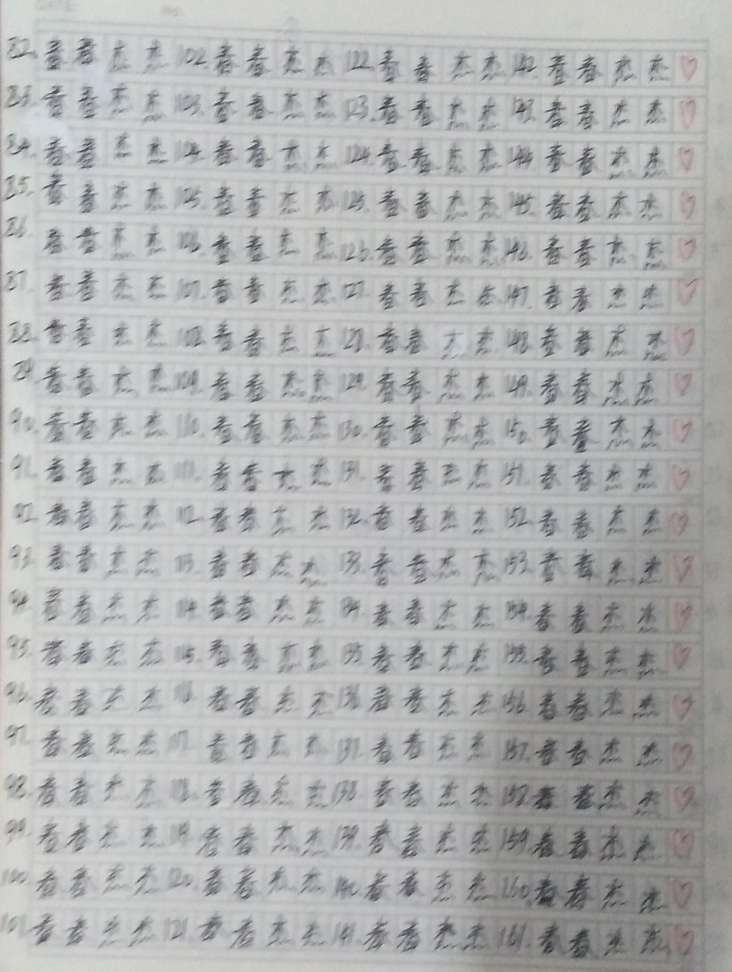 82. 春春杰杰 102. 春春杰杰 122. 春春杰杰 142. 春春杰杰 ♡
83. 春春杰杰 103. 春春杰杰 123. 春春杰杰 143. 春春杰杰 ♡
84. 春春杰杰 104. 春春杰杰 124. 春春杰杰 144. 春春杰杰 ♡
85. 春春杰杰 105. 春春杰杰 125. 春春杰杰 145. 春春杰杰 ♡
86. 春春杰杰 106. 春春杰杰 126. 春春杰杰 146. 春春杰杰 ♡
87. 春春杰杰 107. 春春杰杰 127. 春春杰杰 147. 春春杰杰 ♡
88. 春春杰杰 108. 春春杰杰 128. 春春杰杰 148. 春春杰杰 ♡
89. 春春杰杰 109. 春春杰杰 129. 春春杰杰 149. 春春杰杰 ♡
90. 春春杰杰 110. 春春杰杰 130. 春春杰杰 150. 春春杰杰 ♡
91. 春春杰杰 111. 春春杰杰 131. 春春杰杰 151. 春春杰杰 ♡
92. 春春杰杰 112. 春春杰杰 132. 春春杰杰 152. 春春杰杰 ♡
93. 春春杰杰 113. 春春杰杰 133. 春春杰杰 153. 春春杰杰 ♡
94. 春春杰杰 114. 春春杰杰 134. 春春杰杰 154. 春春杰杰 ♡
95. 春春杰杰 115. 春春杰杰 135. 春春杰杰 155. 春春杰杰 ♡
96. 春春杰杰 116. 春春杰杰 136. 春春杰杰 156. 春春杰杰 ♡
97. 春春杰杰 117. 春春杰杰 137. 春春杰杰 157. 春春杰杰 ♡
98. 春春杰杰 118. 春春杰杰 138. 春春杰杰 158. 春春杰杰 ♡
99. 春春杰杰 119. 春春杰杰 139. 春春杰杰 159. 春春杰杰 ♡
100. 春春杰杰 120. 春春杰杰 140. 春春杰杰 160. 春春杰杰 ♡
101. 春春杰杰 121. 春春杰杰 141. 春春杰杰 161. 春春杰杰 ♡